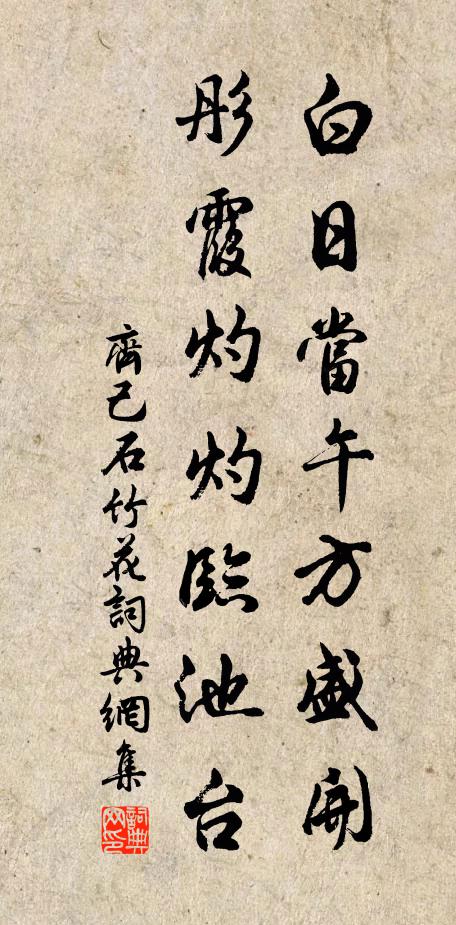 白日當午方盛開
彤霞灼灼臨池台
齊己石竹花詞典網集
詞典网印